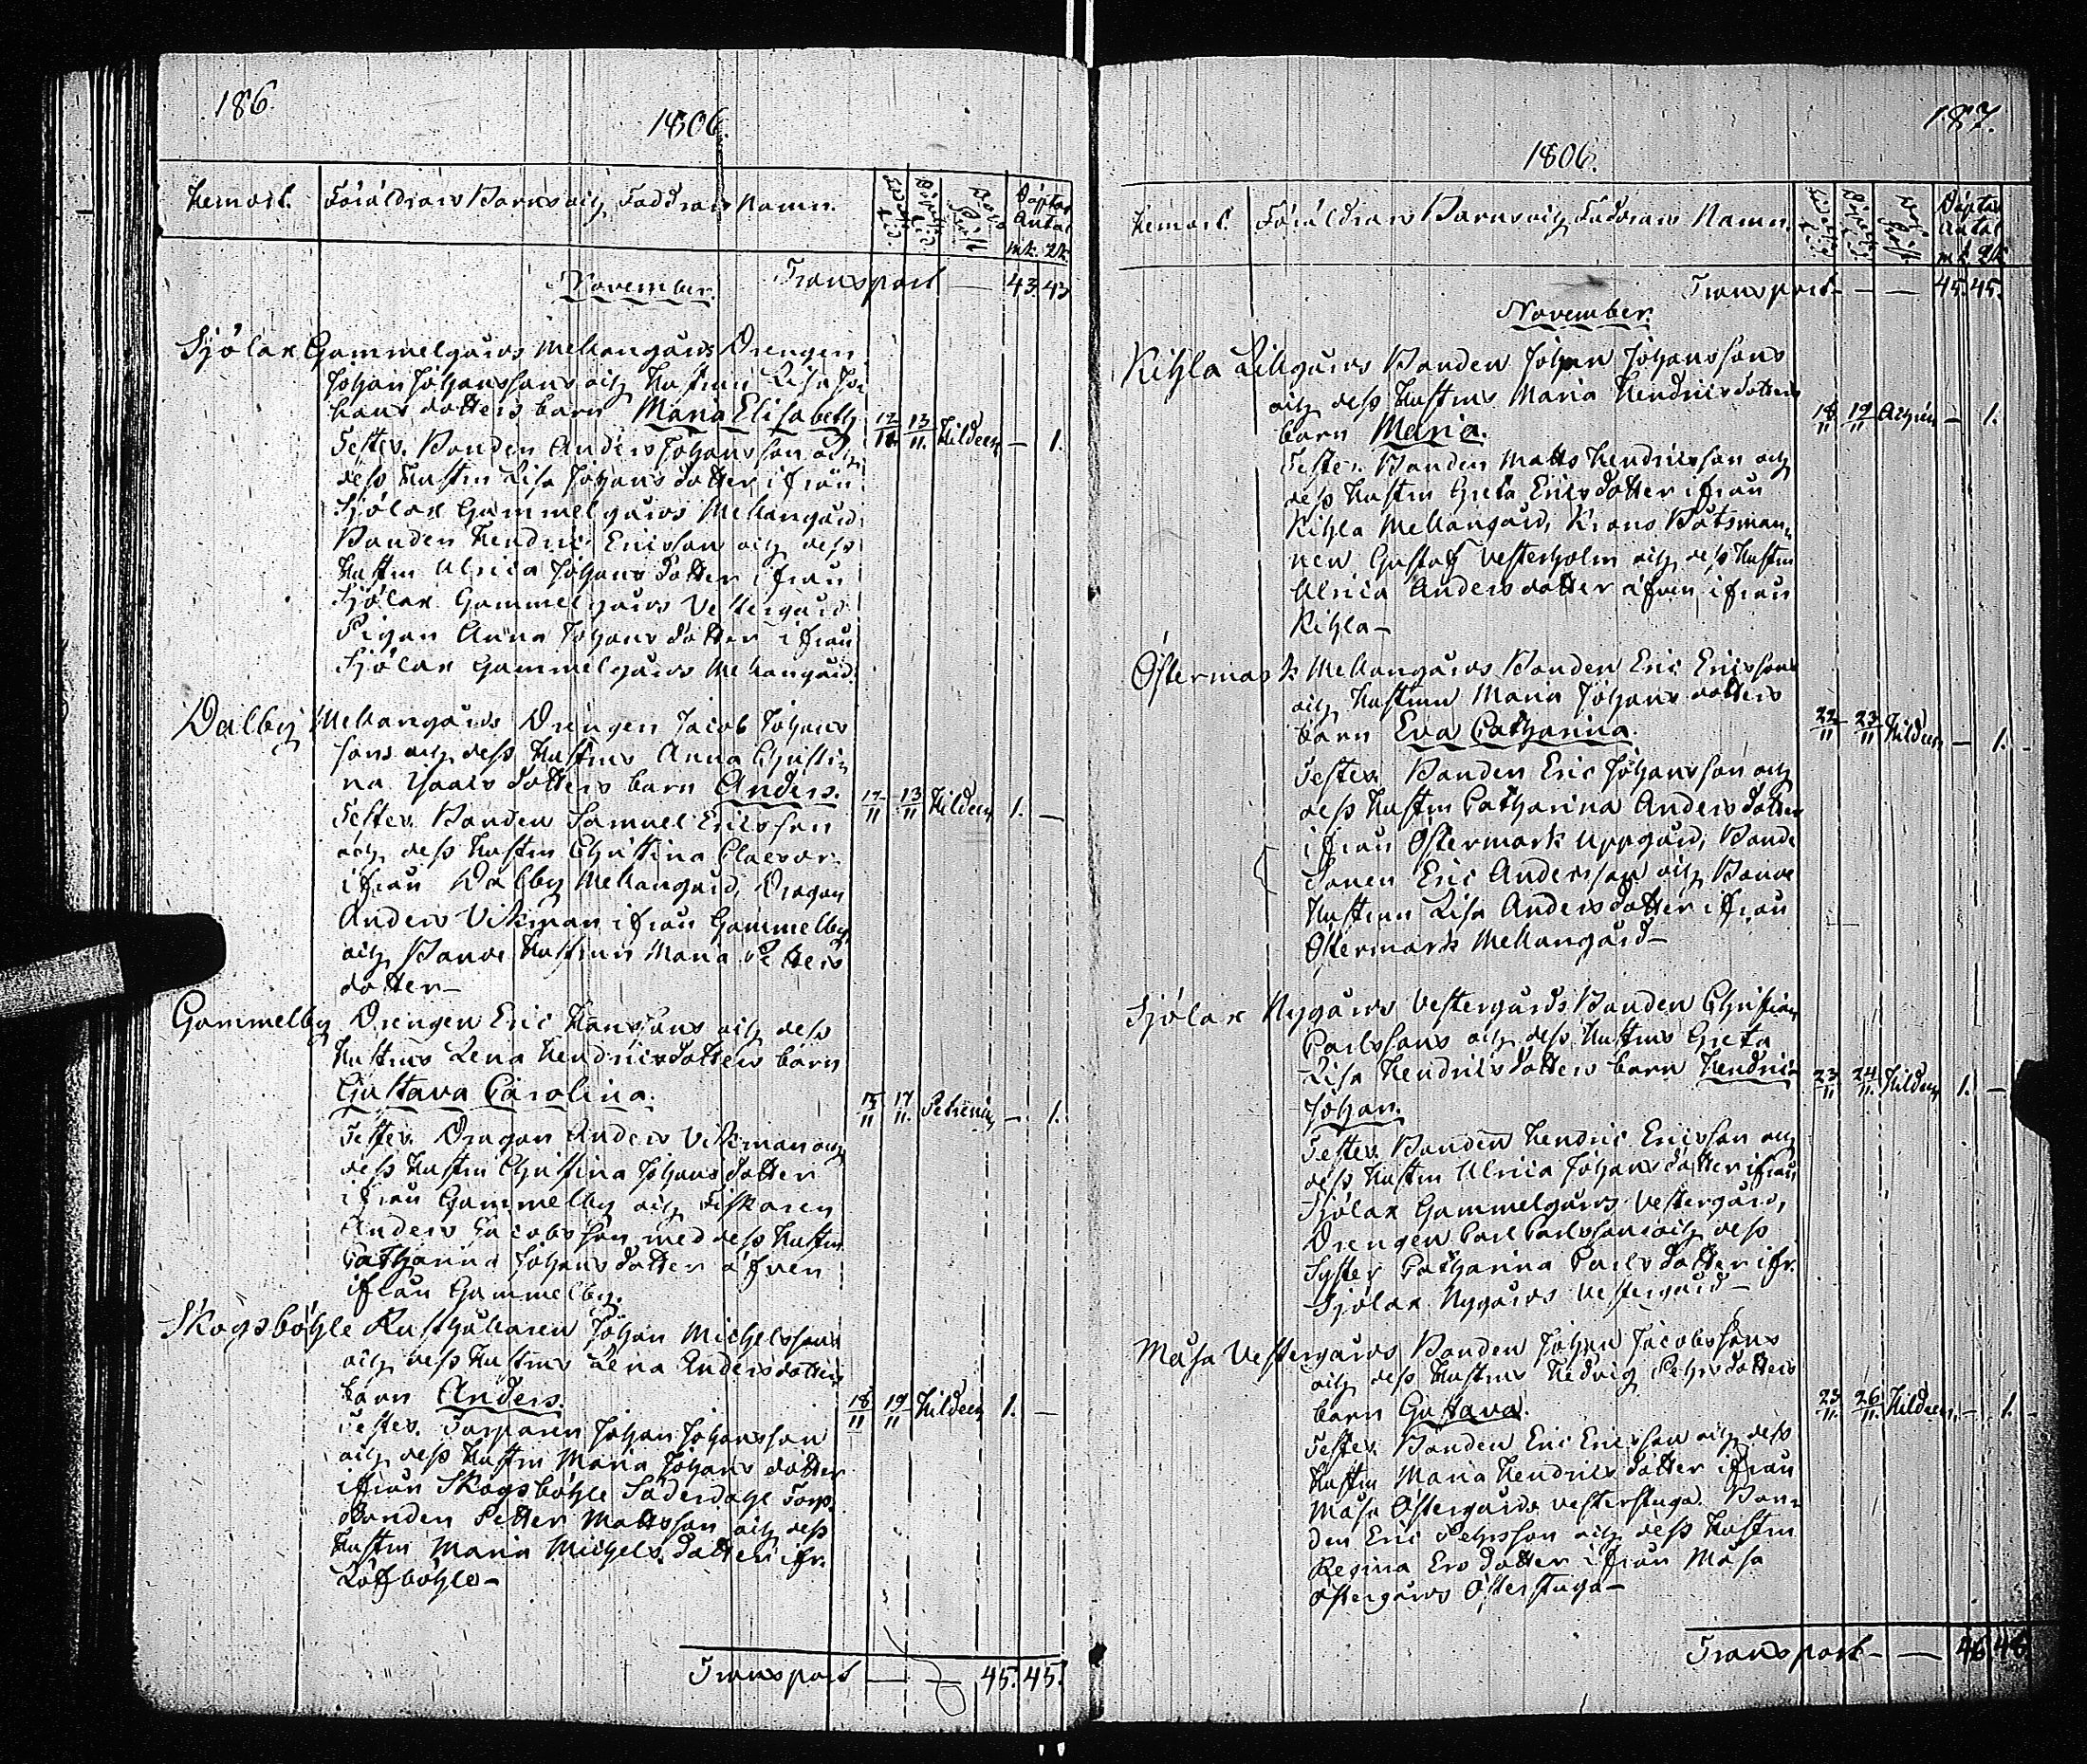 186.
1806.
Hemort. Föräldrars Barns och Faddrars Namn. Födelse tid. Döpelse tid. Döptas Antal mk. qk.
November. Transport — 43. 43
Sjölax Gammelgårds Mellangårds Drengen
Johan Johanssons och Hustrun Lisa Jo
hans dotters barn Maria Elisabeth 12/11 13/11 Hildeen — 1.
Testes. Bonden Anders Johansson och
dess Hustru Lisa Johans dotter ifrån
Sjölax Gammelgårds Mellangård
Bonden Hendric Ericsson och dess
Hustru Ulrica Johans dotter ifrån
Sjölax Gammelgårds Vestergård
Pigan Anna Johans dotter ifrån
Sjölax Gammelgårds Mellangård.
Dalby Mellangårds Drengen Jacob Johans
sons och dess Hustrus Anna Christi-
na Isaacs dotters barn Anders. 12/11 13/11 Hildeen 1. —
Testes. Bonden Samuel Ericsson
och dess Hustru Christina Claesdr.
ifrån Dalby Mellangård, Dragon
Anders Vikman ifrån Gammelby
och Bonde Hustrun Maria Petters
dotter —
Gammelby Drengen Eric Hanssons och dess
Hustrus Lena Hendricsdotters barn
Gustava Carolina. 15/11 17/11. — 1.
Testes. Dragon Anders Vikman och
dess Hustru Christina Johans dotter
ifrån Gammelby och Fiskaren
Anders Jacobsson med dess Hustru
Catharina Johans dotter äfven
ifrån Gammelby.
Skogsböhle Rusthållaren Johan Michelssons
och dess Hustrus Lena Andersdotters
barn Anders. 18/11 19/11 Hildeen 1. —
Testes. Torparen Johan Johansson
och dess Hustru Maria Johans dotter
ifrån Skogsböhle Söderdahl Torp,
Bonden Petter Mattsson och dess
Hustru Maria Michels dotter ifr.
Löfböhle —
Transport — — 45. 45.
187.
1806.
Hemort. Föräldrars Barns och Faddrars Namn. Födelse tid. Döpelse tid. Döptas Antal mk. qk.
Transport — — 45. 45.
November.
Kihla Lillgårds Bonden Johan Johanssons
och dess Hustrus Maria Hendricsdotters
barn Maria. 18/11 19/11 — 1.
Testes. Bonden Matts Hendricsson och
dess Hustru Greta Ericsdotter ifrån
Kihla Mellangård, Krons Båtsman-
nen Gustaf Vesterholm och dess Hustru
Ulrica Andersdotter äfven ifrån
Kihla —
Östermark Mellangårds Bonden Eric Ericssons
och Hustrun Maria Johans dotters
barn Eva Catharina. 22/11 23/11 Hildeen — 1.
Testes. Bonden Eric Johansson och
dess Hustru Catharina Andersdotter
ifrån Östermark Uppgård, Bonde
Sonen Eric Andersson och Bonde
Hustrun Lisa Andersdotter ifrån
Östermarks Mellangård —
Sjölax Nygårds Vestergårds Bonden Christian
Carlssons och dess Hustrus Greta
Lisa Hendricsdotters barn Hendric 23/11 24/11. Hildeen 1. —
Johan.
Testes. Bonden Hendric Ericsson och
dess Hustru Ulrica Johans dotter ifrån
Sjölax Gammelgårds Vestergård,
Drengen Carl Carlsson och dess
Syster Catharina Carls dotter ifr.
Sjölax Nygårds Vestergård —
Måsa Vestergårds Bonden Johan Jacobssons
och dess Hustrus Hedvig Pehrsdotters
barn Gustava. 23/11. 26/11. Hildeen. — 1.
Testes. Bonden Eric Ericsson och dess
Hustru Maria Hendrics dotter ifrån
Måsa Östergårds vesterstuga. Bon-
den Eric Pehrsson och dess Hustru
Regina Ersdotter ifrån Måsa
östergårds Österstuga —
Transport — — 46. 48.